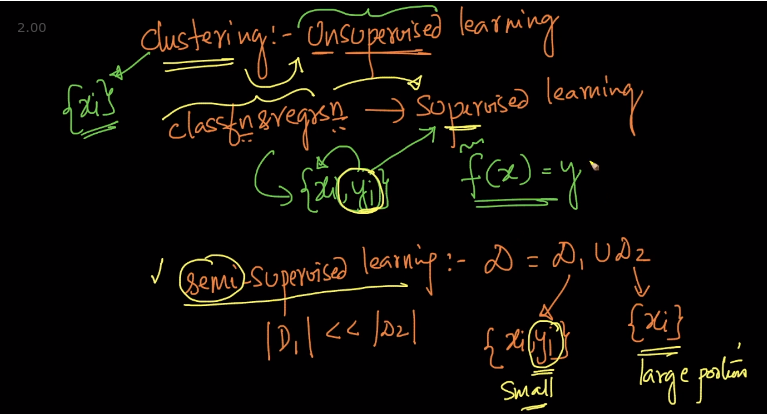 2.00
clustering:- Unsupervised learning
{xi}
classfn & regrsn → Supervised learning
{xi, yi} f(x) = y
✓ semi-supervised learning:- D = D1 ∪ D2
|D1| << |D2| {xi, yi} {xi}
small large portion